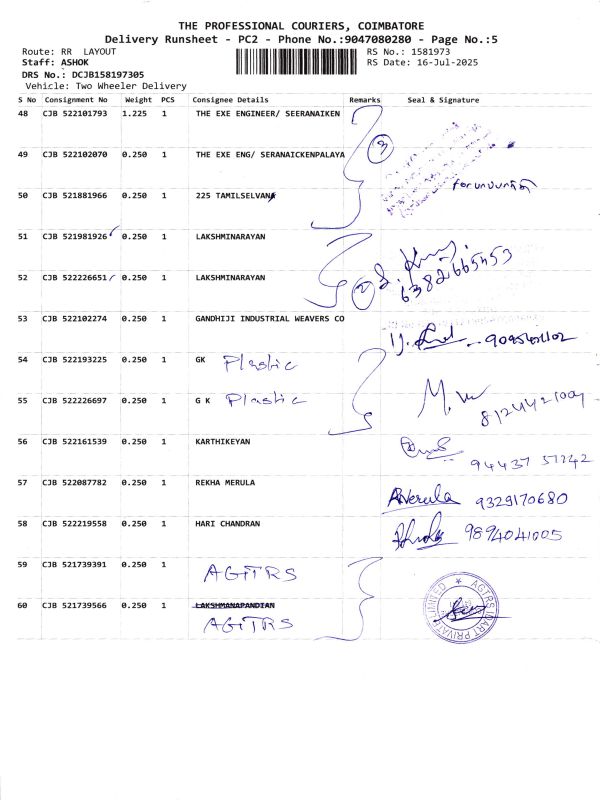 THE PROFESSIONAL COURIERS, COIMBATORE
Delivery Runsheet - PC2 - Phone No.:9047080280 - Page No.:5
Route: RR LAYOUT RS No.: 1581973
Staff: ASHOK RS Date: 16-Jul-2025
DRS No.: DCJB158197305
Vehicle: Two Wheeler Delivery
S No Consignment No Weight PCS Consignee Details Remarks Seal & Signature
48 CJB 522101793 1.225 1 THE EXE ENGINEER/ SEERANAIKEN
49 CJB 522102070 0.250 1 THE EXE ENG/ SERANAICKENPALAYA 3
50 CJB 521881966 0.250 1 225 TAMILSELVAN
51 CJB 521981926 0.250 1 LAKSHMINARAYAN
52 CJB 522226651 0.250 1 LAKSHMINARAYAN 2 6382665453
53 CJB 522102274 0.250 1 GANDHIJI INDUSTRIAL WEAVERS CO
54 CJB 522193225 0.250 1 GK Plastic
55 CJB 522226697 0.250 1 G K Plastic
56 CJB 522161539 0.250 1 KARTHIKEYAN
57 CJB 522087782 0.250 1 REKHA MERULA RMerula 9329170680
58 CJB 522219558 0.250 1 HARI CHANDRAN 9894041005
59 CJB 521739391 0.250 1 AGTRS
60 CJB 521739566 0.250 1 LAKSHMANAPANDIAN
AGTRS